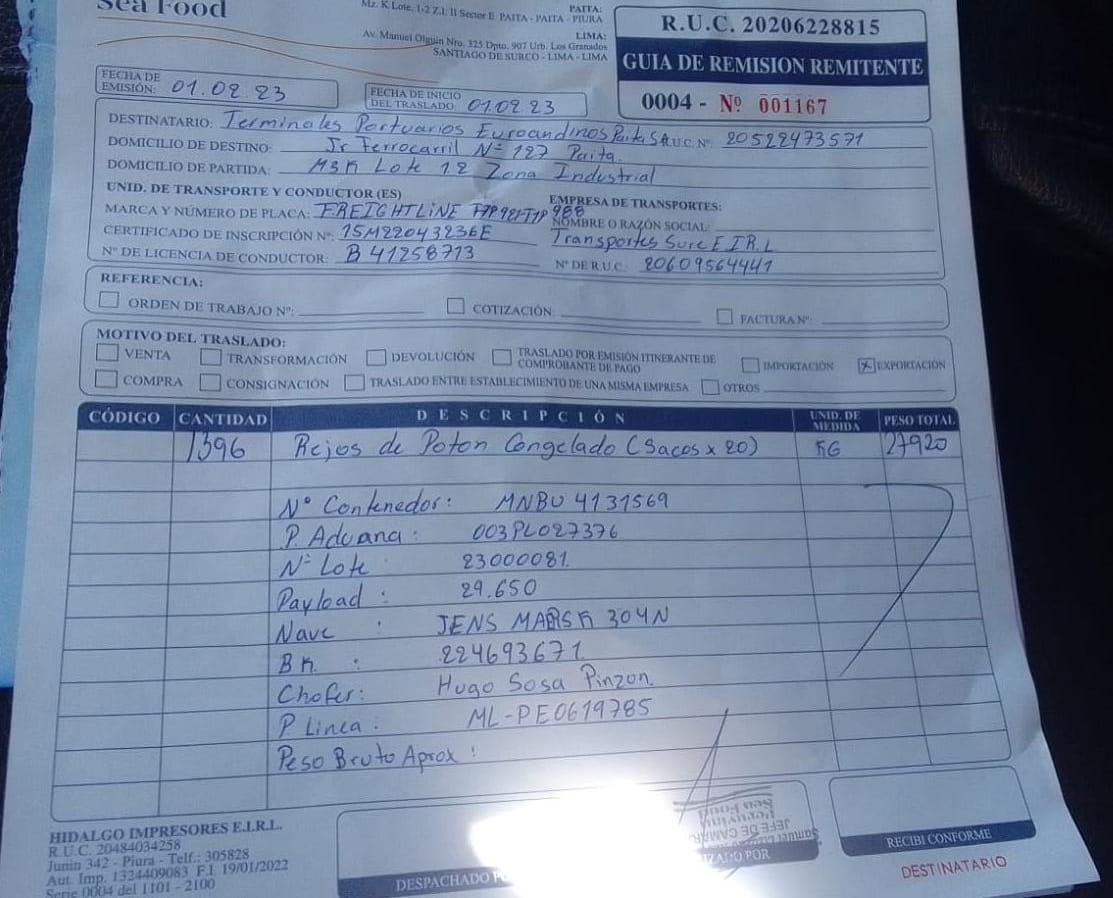 Sea Food
Mz. K Lote. 1-2 Z.I. II Sector E PAITA - PAITA - PIURA
PAITA:
LIMA:
Av. Manuel Olguin Nro. 325 Dpto. 907 Urb. Los Granados
SANTIAGO DE SURCO - LIMA - LIMA
R.U.C. 20206228815
GUIA DE REMISION REMITENTE
0004 - Nº 001167
FECHA DE EMISIÓN: 01.02.23
FECHA DE INICIO DEL TRASLADO: 01.02.23
DESTINATARIO: Terminales Portuarios Euroandinos Paita SA R.U.C. Nº 20522473571
DOMICILIO DE DESTINO: Jr Ferrocarril Nº 127 Paita.
DOMICILIO DE PARTIDA: Lote 12 Zona Industrial
UNID. DE TRANSPORTE Y CONDUCTOR (ES)
EMPRESA DE TRANSPORTES:
MARCA Y NÚMERO DE PLACA: FREIGHTLINE 988
NOMBRE O RAZÓN SOCIAL:
CERTIFICADO DE INSCRIPCIÓN Nº: 15M22043236E
Transportes Sure E I R.L
Nº DE LICENCIA DE CONDUCTOR: B 41258713
Nº DE R.U.C: 20609564441
REFERENCIA:
ORDEN DE TRABAJO Nº: COTIZACIÓN: FACTURA Nº
MOTIVO DEL TRASLADO:
VENTA TRANSFORMACIÓN DEVOLUCIÓN TRASLADO POR EMISIÓN ITINERANTE DE COMPROBANTE DE PAGO IMPORTACIÓN X EXPORTACIÓN
COMPRA CONSIGNACIÓN TRASLADO ENTRE ESTABLECIMIENTO DE UNA MISMA EMPRESA OTROS
CÓDIGO CANTIDAD DESCRIPCIÓN UNID. DE MEDIDA PESO TOTAL
1396 Rejos de Poton Congelado (Sacos x 20) KG 27920
Nº Contenedor: MNBU 4131569
P. Aduana: 003PL027376
Nº Lote 23000081.
Payload : 29.650
Nave : JENS MAERSK 304N
BK. : 224693671
Chofer: Hugo Sosa Pinzon.
P Linea: ML-PE0619785
Peso Bruto Aprox :
HIDALGO IMPRESORES E.I.R.L.
R.U.C. 20484034258
Junin 342 - Piura - Telf.: 305828
Aut. Imp. 1324409083 F.I. 19/01/2022
Serie 0004 del 1101 - 2100
DESPACHADO
Samuel
JEFE DE
Sea Food
POR
RECIBI CONFORME
DESTINATARIO